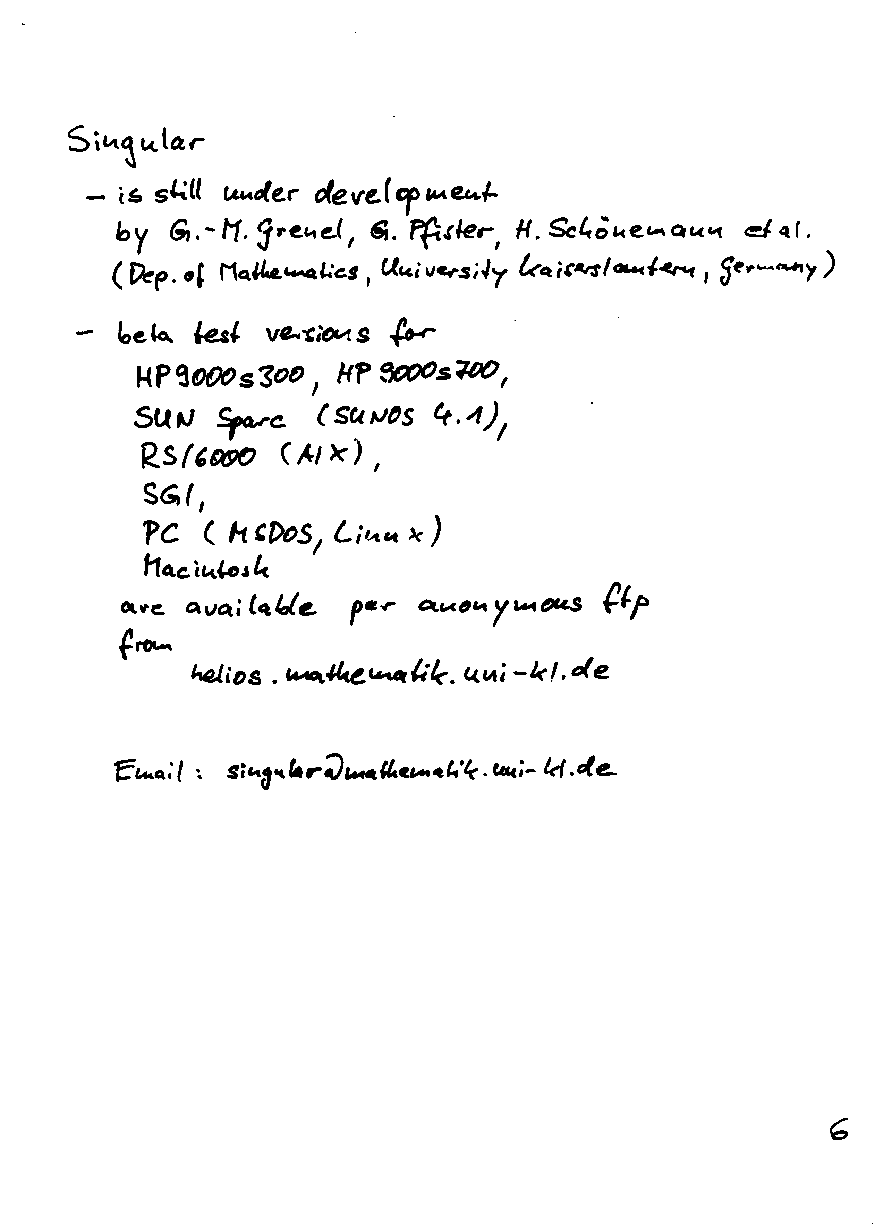 Singular
- is still under development
by G.-M. Greuel, G. Pfister, H. Schönemann et al.
(Dep. of Mathematics, University Kaiserslautern, Germany)
- beta test versions for
HP9000s300, HP9000s700,
SUN Sparc (SUNOS 4.1),
RS/6000 (AIX),
SGI,
PC (MSDOS, Linux)
Macintosh
are available per anonymous ftp
from
helios.mathematik.uni-kl.de
Email: singular@mathematik.uni-kl.de
6